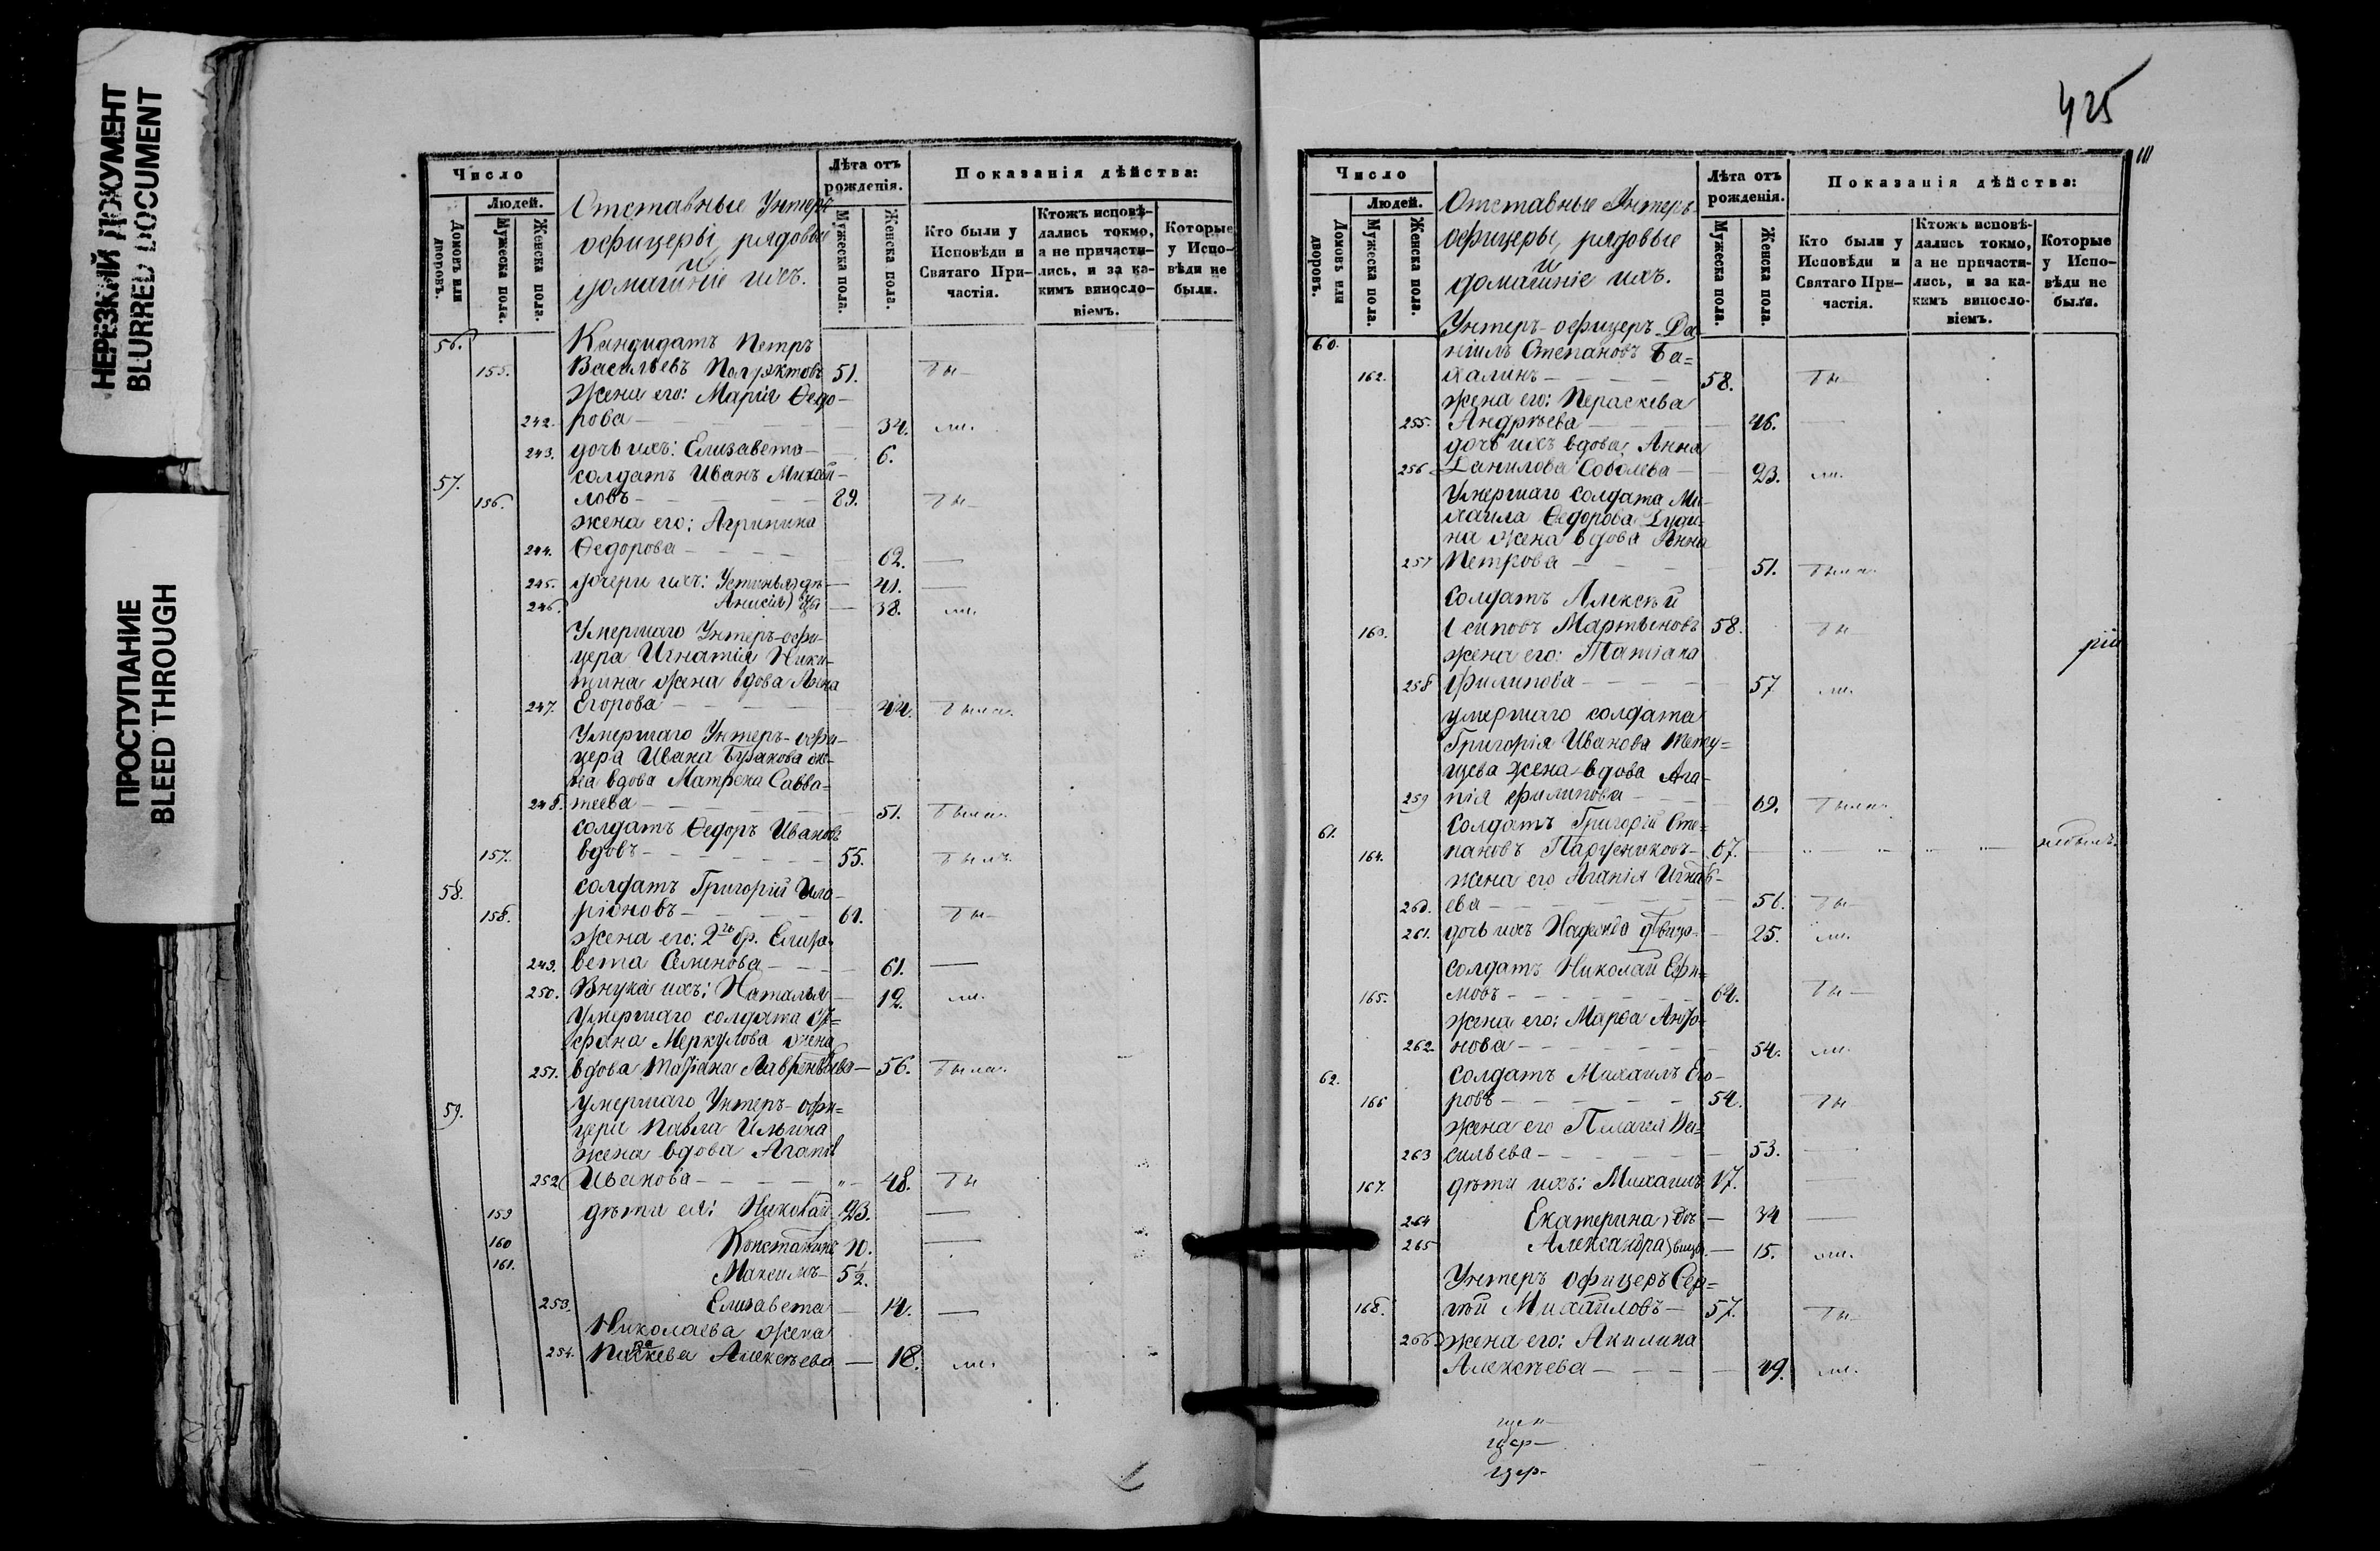 НЕРЕЗКИЙ ДОКУМЕНТ
BLURRED DOCUMENT
ПРОСТУПАНИЕ
BLEED THROUGH
Число
Людей.
Домовъ или дворовъ.
Мужеска пола.
Женска пола.
Отставные Унтеръ
офицеры, рядовые
и
домашніе ихъ.
Лѣта отъ рожденія.
Мужеска пола.
Женска пола.
Показанія дѣйства:
Кто были у Исповѣди и Святаго Причастія.
Ктожъ исповѣдались токмо, а не причастились, и за какимъ винословіемъ.
Которые у Исповѣди не были.
56. Кандидатъ Петръ
155. Васильевъ 51. бы—
жена его: Марія Ѳедо-
242. рова — 34. ли.
243. дочь ихъ: Елизавета — 6.
57. солдатъ Иванъ Михай-
156. ловъ — 89. бы—
жена его: Агрипина
244. Ѳедорова — 62. —
245. дочери ихъ: Устинья дѣ- — 41. —
246. Анисія — 38. ли.
Умершаго Унтеръ-офи-
цера Игнатія Ники-
тина жена вдова Анна
247. Егорова — 44. была.
Умершаго Унтеръ-офи-
цера Ивана Бузакова же-
на вдова Матрена Савва-
248. теева — 51. была.
солдатъ Ѳедоръ Ивановъ
157. вдовъ — 55. былъ.
58. солдатъ Григорій Ила-
158. ріоновъ — 61. бы—
жена его: 2го бр. Елиза-
249. вета Семенова — 61. —
250. Внука ихъ: Наталья — 12. ли.
Умершаго солдата
Меркулова жена
251. вдова Лаврентьева — 56. была.
59. умершаго Унтеръ-офи-
цера Павла Ильина
жена вдова Агапія
252 Иванова — „ — 48. бы
159 дѣти ея: Николай 23. —
160 Константинъ 10. —
161. Максимъ — 5½.
253. Елизавета — 14. —
Николаева жена
254. Алексѣева — 18. ли.
425
Число
Людей.
Домовъ или дворовъ.
Мужеска пола.
Женска пола.
Отставные Унтеръ
офицеры, рядовые
и
домашніе ихъ.
Лѣта отъ рожденія.
Мужеска пола.
Женска пола.
Показанія дѣйства:
Кто были у Исповѣди и Святаго Причастія.
Ктожъ исповѣдались токмо, а не причастились, и за какимъ винословіемъ.
Которые у Исповѣди не были.
60. Унтеръ-офицеръ Да-
ніилъ Степановъ Ба=
162. халинъ — 58. бы—
жена его: Пераскева
255. Андрѣева — 46. —
дочь ихъ вдова, Анна
256 Данилова Соболева — 23. ли.
Умершаго солдата Ми-
хаила Ѳедорова Дуди-
на жена вдова Анна
257 Петрова — 51. была.
солдатъ Алексѣй
163. Осиповъ Мартыновъ 58. бы
жена его: Татіана
258 Филипова — 57 ли.
умершаго солдата
Григорія Иванова
жена вдова Ага-
259 пія Филипова — 69. была.
61. Солдатъ Григорій Сте-
164. пановъ Парусниковъ — 67. — небылъ.
жена его Агапія Игнатъ-
260. ева — 56. бы—
261. дочь ихъ Надежда двица — 25. ли.
солдатъ Николай Ефи=
165. мовъ — 64. бы—
жена его: Марѳа Анто-
262 нова — 54. ли.
62. солдатъ Михаилъ Его-
166 ровъ — 54. бы
жена его Пелагея Ва-
263 сильева — 53. —
167. дѣти ихъ: Михаилъ 17. —
264 Екатерина — 34 —
265 Александра — 15. ли.
Унтеръ офицеръ Сер=
168. гѣй Михайловъ — 57. бы—
266 жена его: Акилина
Алексѣева — 49. ли.